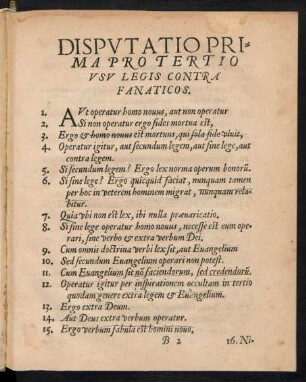 DISPVTATIO PRI-
MA PRO TERTIO
VSV LEGIS CONTRA
FANATICOS.
1. AVt operatur homo nouus, aut non operatur
2. Si non operatur ergo fides mortua est,
3. Ergo & homo nouus est mortuus, qui sola fide viuit,
4. Operatur igitur, aut secundum legem, aut sine lege, aut
contra legem.
5. Si secundum legem? Ergo lex norma operum bonorū.
6. Si sine lege? Ergo quicquid faciat, nunquam tamen
per hoc in veterem hominem migrat, nunquam
bitur.
7. Quia vbi non est lex, ibi nulla præuaricatio.
8. Si sine lege operatur homo nouus, necesse est eum ope-
rari, sine verbo & extra verbum Dei,
9. Cum omnis doctrina verbi lex sit, aut Euangelium
10. Sed secundum Euangelium operari non potest.
11. Cum Euangelium sit nō faciendorum, sed credendorū.
12. Operatur igitur per inspirationem occultam in tertio
quodam genere extra legem & Euangelium.
13. Ergo extra Deum.
14. Aut Deus extra verbum operatur.
15. Ergo verbum fabula est homini nouo,
B 2 16. Ni-